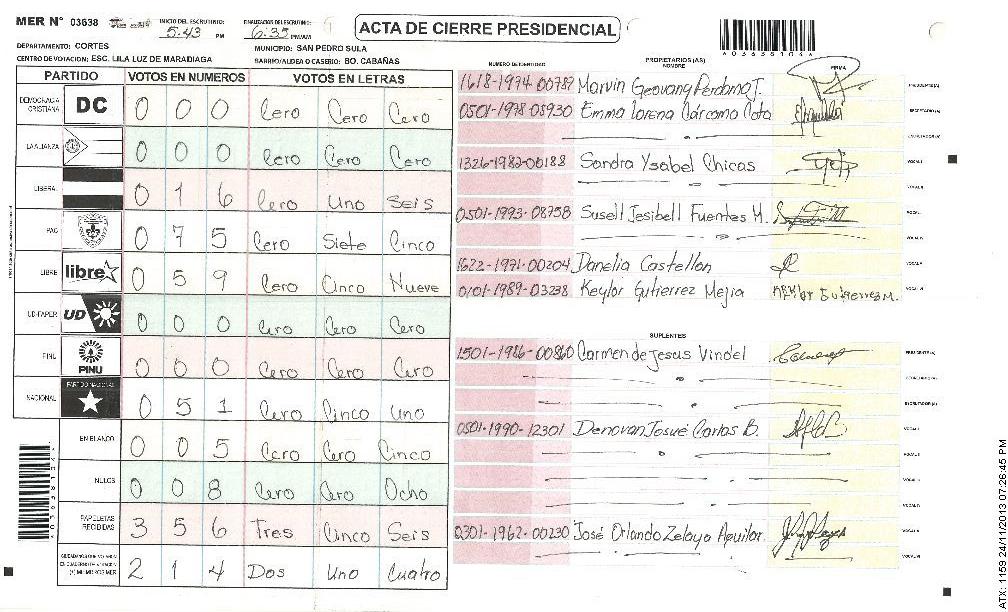 MER N° 03638
INICIO DEL ESCRUTINIO:
5:43 PM
FINALIZACION DEL ESCRUTINIO:
6:35 PM/AM
ACTA DE CIERRE PRESIDENCIAL
DEPARTAMENTO: CORTES
MUNICIPIO: SAN PEDRO SULA
CENTRO DE VOTACION: ESC. LILA LUZ DE MARADIAGA
BARRIO/ALDEA O CASERIO: BO. CABAÑAS
PARTIDO VOTOS EN NUMEROS VOTOS EN LETRAS
DEMOCRACIA CRISTIANA DC 0 0 0 Cero Cero Cero
LA ALIANZA 0 0 0 Cero Cero Cero
LIBERAL 0 1 6 Cero Uno Seis
PAC 0 7 5 Cero Siete Cinco
LIBRE libre 0 5 9 Cero Cinco Nueve
UD-FAPER UD 0 0 0 Cero Cero Cero
PINU PINU 0 0 0 Cero Cero Cero
NACIONAL PARTIDO NACIONAL 0 5 1 Cero Cinco Uno
EN BLANCO 0 0 5 Cero Cero Cinco
NULOS 0 0 8 Cero Cero Ocho
PAPELETAS RECIBIDAS 3 5 6 Tres Cinco Seis
CIUDADANOS QUE VOTARON 2 1 4 Dos Uno Cuatro
NUMERO DE IDENTIDAD PROPIETARIOS (AS) NOMBRE FIRMA
1618-1974-00787 Marvin Geovany Perdomo T. PRESIDENTE (A)
0501-1978-05930 Emma Lorena Cárcamo Cota SECRETARIO (A)
ESCRUTADOR (A)
1326-1982-00188 Sandra Ysabel Chicas VOCAL I
VOCAL II
0501-1993-08758 Susell Jesibell Fuentes M. VOCAL
VOCAL
1622-1971-00204 Danelia Castellon VOCAL
0101-1989-03238 Keylor Gutierrez Mejia Keylor Gutierrez M. VOCAL
SUPLENTES
1501-1986-00860 Carmen de Jesus Vindel PRESIDENTE (A)
SECRETARIO (A)
ESCRUTADOR (A)
0501-1990-12301 Denovan Josué Cartas B. VOCAL I
VOCAL
VOCAL
VOCAL
0301-1962-00230 José Orlando Zelaya Aguilar VOCAL
VOCAL
ATX: 1159 24/11/2013 07:26:45 PM